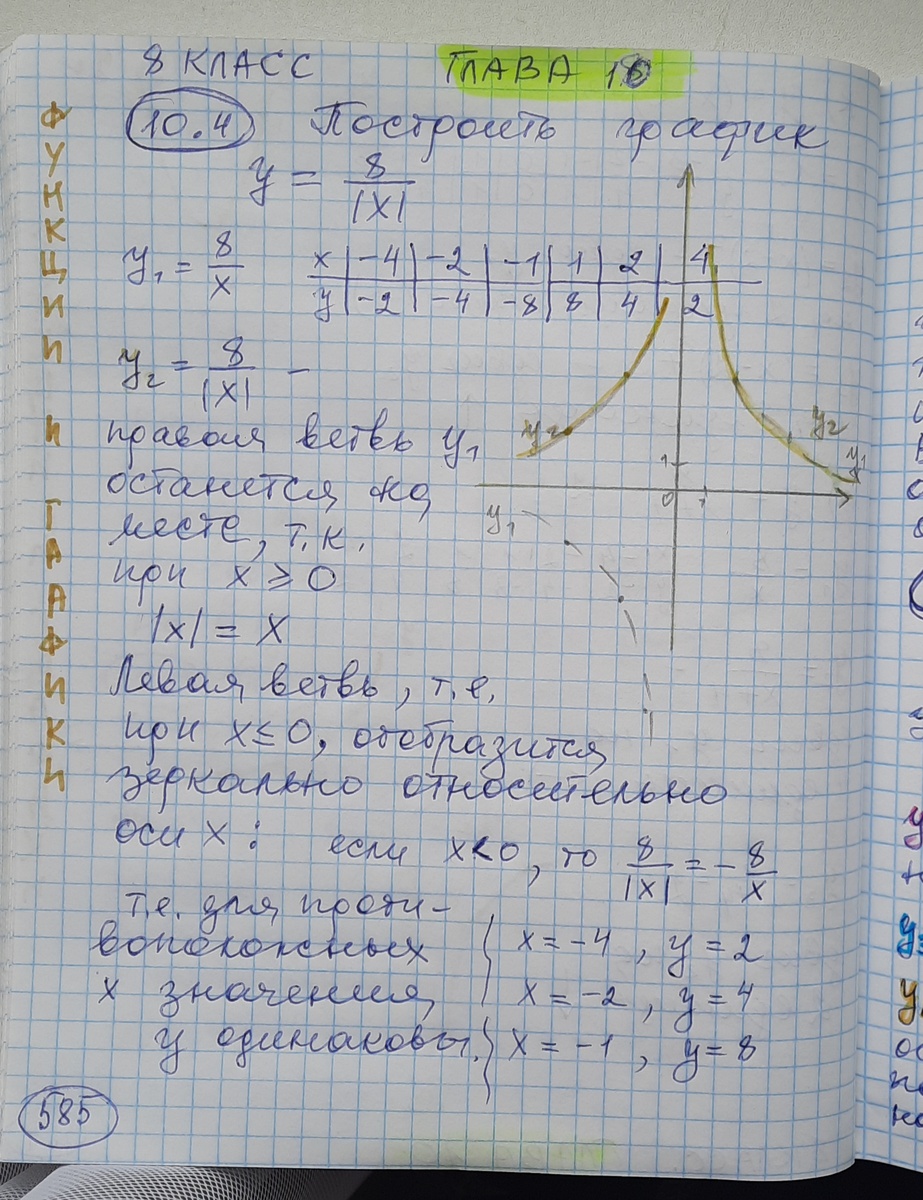 8 КЛАСС ГЛАВА 10
ФУНКЦИИ И ГРАФИКИ
10.4 Построить график
y = 8/|x|
y₁ = 8/x
x | -4 | -2 | -1 | 1 | 2 | 4
y | -2 | -4 | -8 | 8 | 4 | 2
y₂ = 8/|x| –
правая ветвь y₁
останется на
месте, т.к.
при x ≥ 0
|x| = x
y₂
y₂
y₁
1
0 1
y₁
Левая ветвь, т.е.
при x ≤ 0, отобразится
зеркально относительно
оси x: если x<0, то 8/|x| = - 8/x
т.е. для проти-
воположных
x значения
y одинаковы.
x = -4, y = 2
x = -2, y = 4
x = -1, y = 8
585